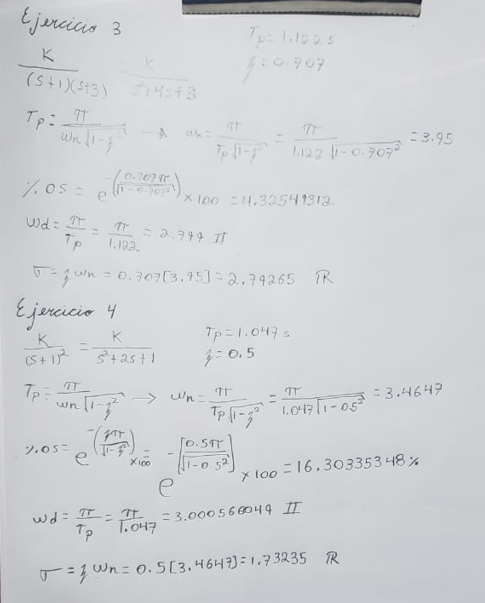 Ejercicio 3
K/((S+1)(S+3)) = K/(S²+4S+3)
Tp=1.122s
ʒ=0.707
Tp=π/(wn√(1-ʒ²)) → wn=π/(Tp√(1-ʒ²)) = π/(1.122√(1-0.707²)) =3.95
%OS = e^-(0.707π/√(1-0.707²)) ×100 =4.32549312
Wd=π/Tp=π/1.122=2.799 II
σ=ʒ wn=0.707[3.95]=2.79265 R
Ejercicio 4
K/(S+1)² = K/(S²+2S+1)
Tp=1.047s
ʒ=0.5
Tp=π/(wn√(1-ʒ²)) → wn=π/(Tp√(1-ʒ²))=π/(1.047√(1-0.5²))=3.4647
%OS=e^-(ʒπ/√(1-ʒ²)) ×100 = e^-[0.5π/√(1-0.5²)] ×100=16.30335348%
wd=π/Tp=π/1.047=3.000566044 II
σ=ʒ wn=0.5[3.4647]=1.73235 R